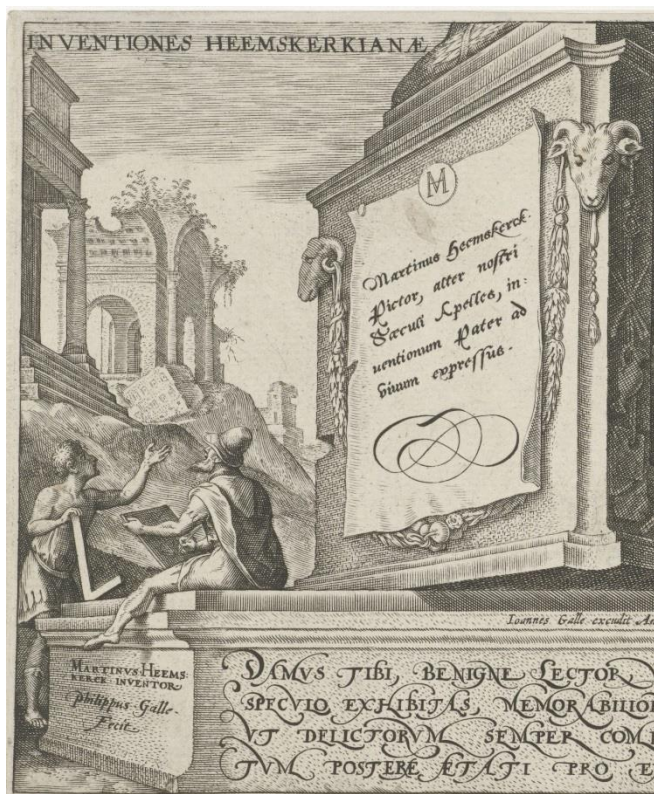 INVENTIONES HEEMSKERKIANÆ
M
Martinus Heemskerck.
Pictor, alter nostri
Sæculi Apelles, in:
uentionum Pater ad
viuum expressus.
Ioannes Galle excudit
MARTINVS·HEEMS
KERCK·INVENTOR
Philippus Galle.
Fecit.
DAMVS TIBI, BENIGNE LECTOR,
SPECVLO EXHIBITAS, MEMORABILIOR
VT DELICTORVM SEMPER COM
TVM POSTERÆ ÆTATI PRO E